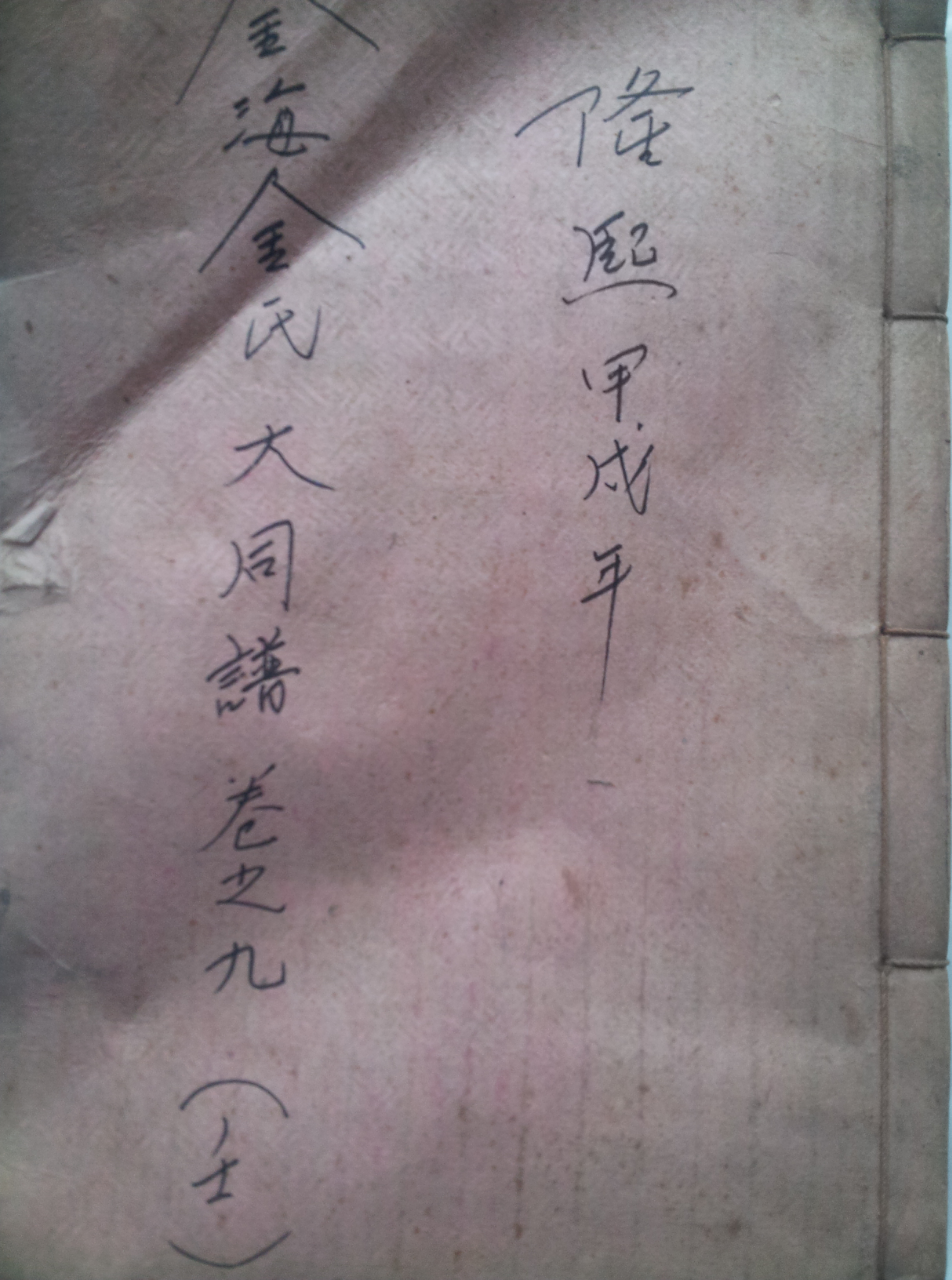 隆熙甲戌年
金海金氏大同譜卷之九(壬)